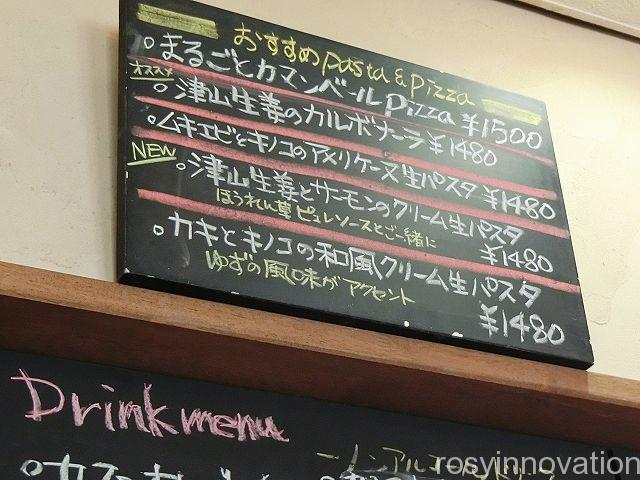 おすすめ pasta & pizza
○まるごとカマンベールpizza ¥1500
オススメ
○津山生姜のカルボナーラ ¥1480
○ムキエビとキノコのアメリケーヌ生パスタ ¥1480
NEW
○津山生姜とサーモンのクリーム生パスタ
ほうれん草ピュレソースとご一緒に ¥1480
○カキとキノコの和風クリーム生パスタ
ゆずの風味がアクセント ¥1480
Drink menu
rosyinnovation